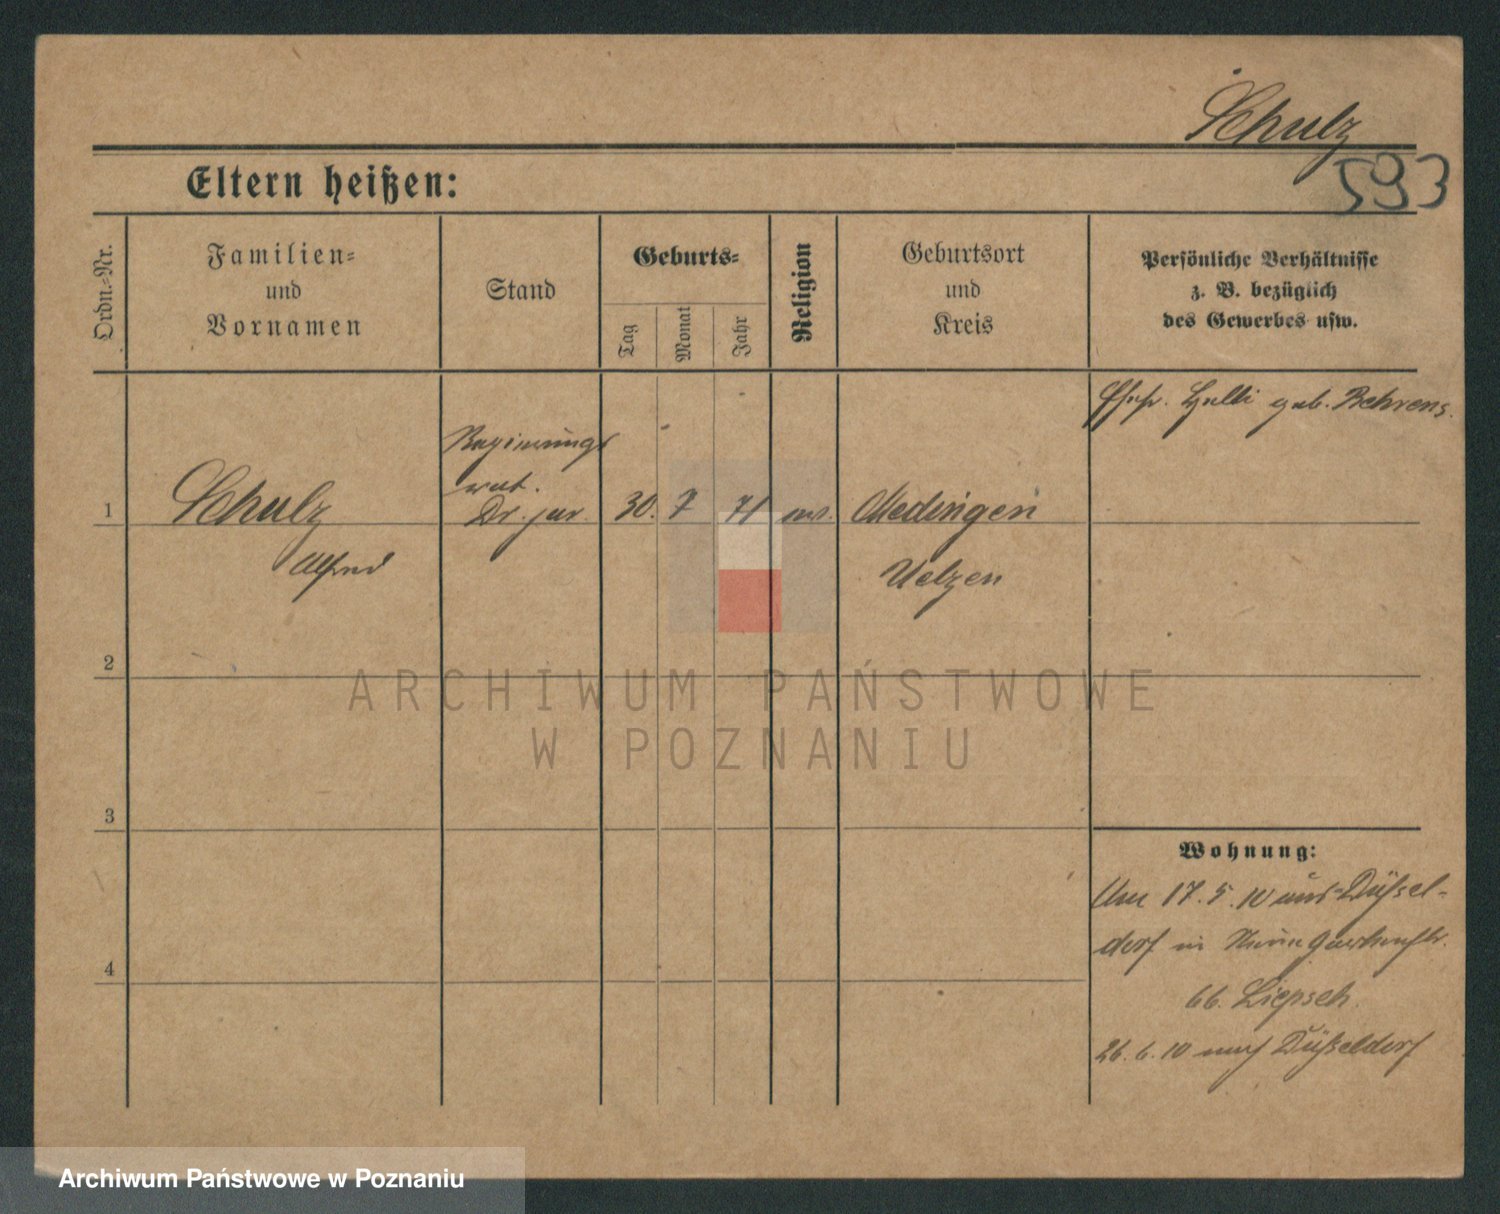 Schulz
593
Eltern heißen:
Ordn.-Nr.
Familien-
und
Vornamen
Stand
Geburts-
Tag
Monat
Jahr
Religion
Geburtsort
und
Kreis
Persönliche Verhältnisse
z. B. bezüglich
des Gewerbes usw.
Ehefr. geb. Behrens.
Regierungs
rat.
1 Schulz Dr. jur. 30. 7 71 ev. Medingen
Alfred Uelzen
2
ARCHIWUM PAŃSTWOWE
W POZNANIU
3
Wohnung:
Am 17.5.10 aus Düssel-
dorf in
4
66. Liepsch.
26.6.10 nach Düsseldorf
Archiwum Państwowe w Poznaniu